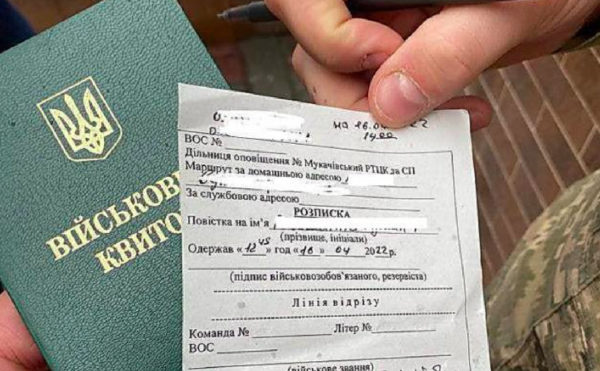 ВІЙСЬКОВ
КВИТО
14 00
ВОС №
Дільниця оповіщення № Мукачівський РТЦК за СП
Маршрут за домашньою адресою
За службовою адресою
РОЗПИСКА
Повістка на ім'я
(прізвище, ініціали)
Одержав «12 45» год «16» 04 2022 р.
(підпис військовозобов'язаного, резервіста)
Лінія відрізу
Команда № Літер №
ВОС
(військове звання)